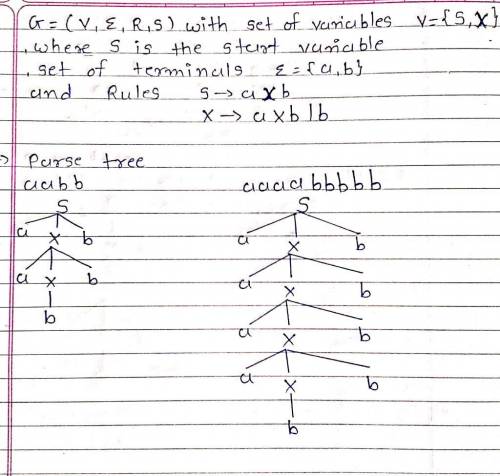 G = (V, Σ, R, S) with set of variables V={S,X}
, where S is the start variable
, set of terminals Σ={a,b}
and Rules S→ a X b
X → a x b | b
→ Parse tree
aabb aaaabbbbb
S S
a X b a X b
a X b a X b
b a X b
a X b
b